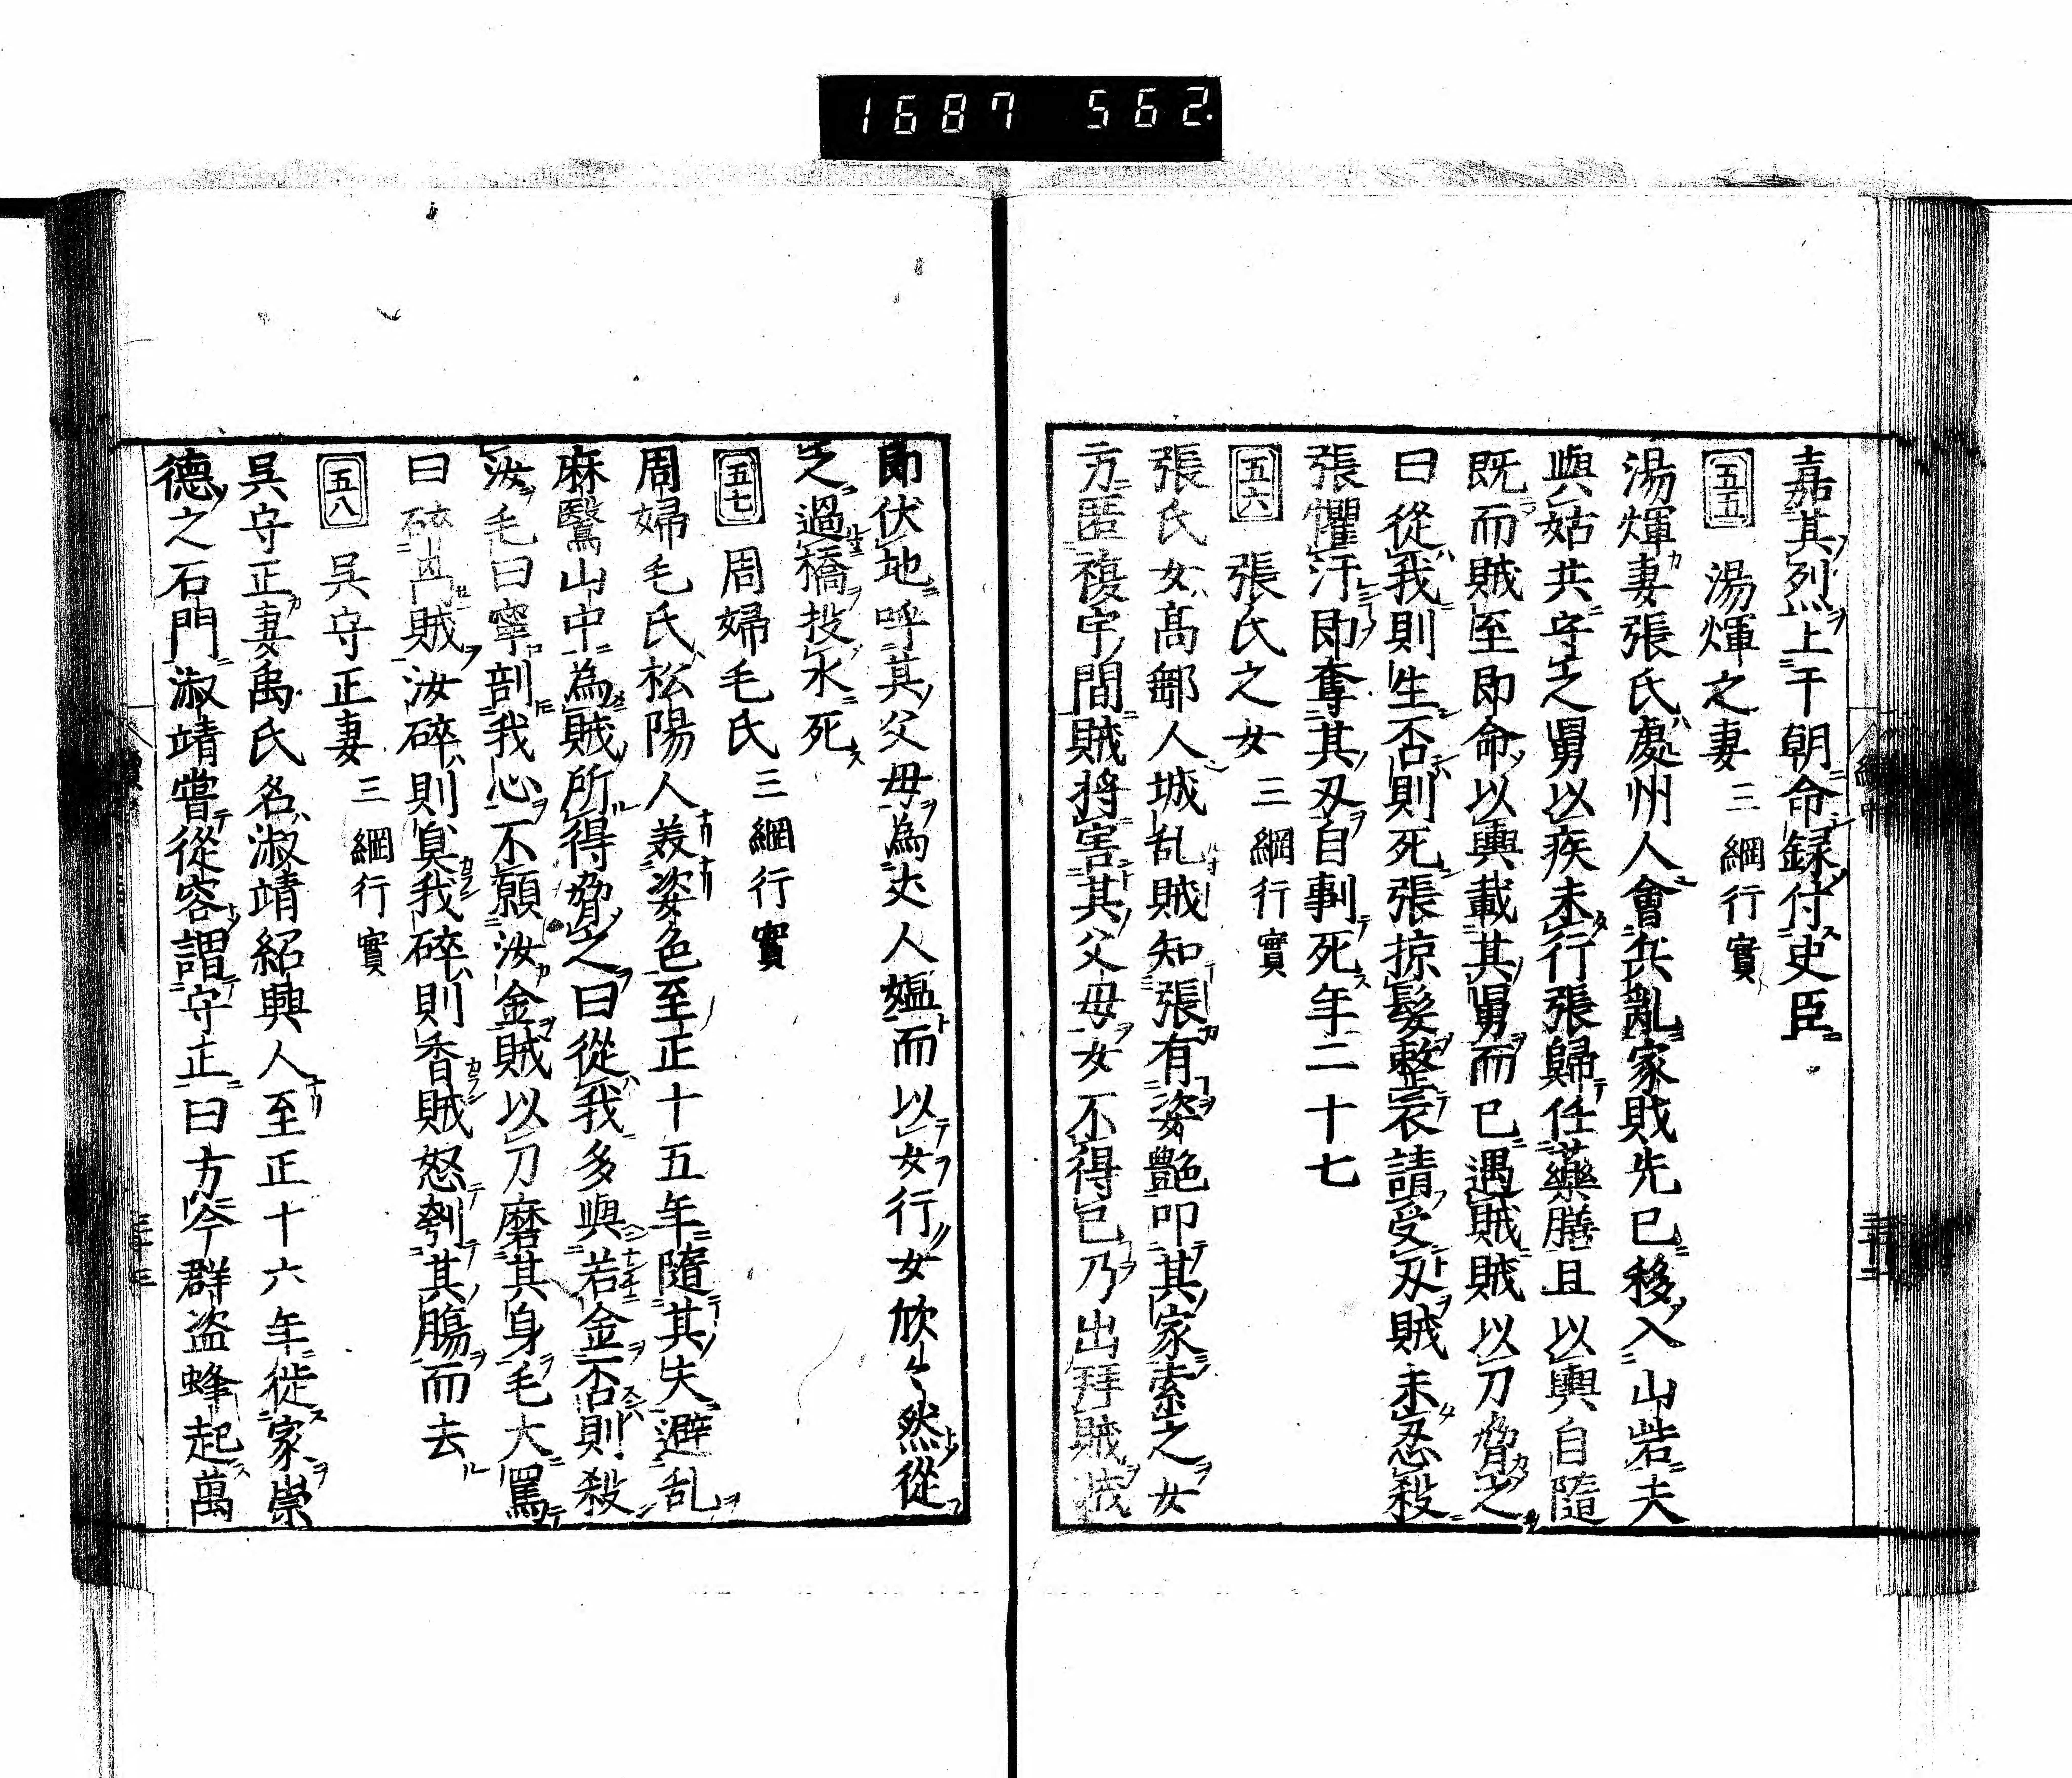 1687 562.
嘉其烈上干朝命録付史臣
五五 湯煇之妻 三綱行實
湯煇妻張氏處州人會兵亂家賊先已移入山砦夫
與姑共守之舅以疾未行張歸任藥膳且以輿自隨
既而賊至即命以輿載其舅而已遇賊賊以刀脅之
曰從我則生否則死張掠髮整衣請受刃賊未忍殺
張懼汙即奪其刃自剚死年二十七
五六 張氏之女 三綱行實
張氏女高郵人城乱賊知張有姿艶叩其家索之女
方匿複宇間賊将害其父母女不得已乃出拜賊賊
即伏地呼其父母為夫人媼而以女行女欣々然從
之過橋投水死
五七 周婦毛氏 三綱行實
周婦毛氏松陽人美姿色至正十五年隨其夫避乱
麻鷖山中為賊所得脅之曰從我多與若金否則殺
汝毛曰寧剖我心不願汝金賊以刀磨其身毛大罵
曰碎凸賊汝碎則臭我碎則香賊怒刳其腸而去
五八 吳守正妻 三綱行實
吳守正妻禹氏名淑靖紹興人至正十六年徙家崇
德之石門淑靖嘗從容謂守正曰方今群盗蜂起萬